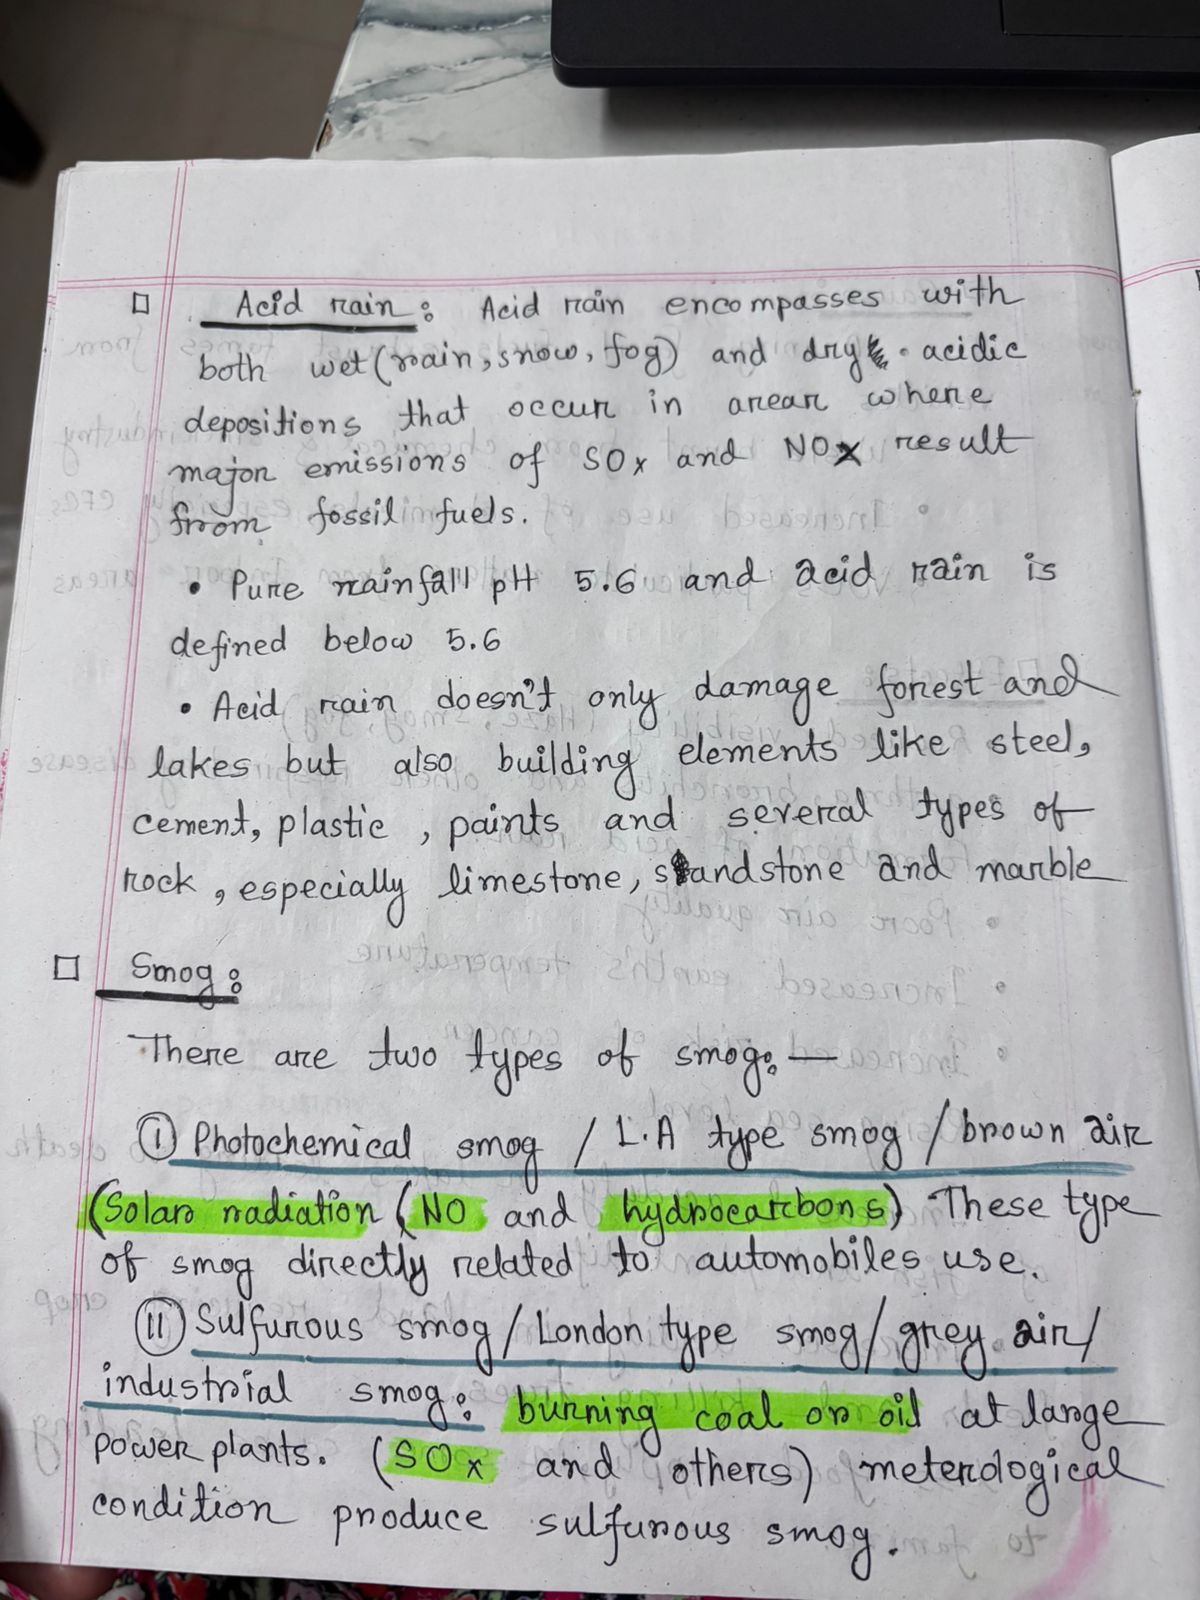 □ Acid rain: Acid rain encompasses with
both wet (rain, snow, fog) and dry acidic
depositions that occur in arear where
major emissions of SOx and NOx result
from fossil fuels.
• Pure rainfall pH 5.6 and acid rain is
defined below 5.6
• Acid rain doesn't only damage forest and
lakes but also building elements like steel,
cement, plastic, paints and several types of
rock, especially limestone, sandstone and marble
□ Smog:
There are two types of smog:—
(I) Photochemical smog / L.A type smog / brown air
(Solar radiation (NO and hydrocarbons) These type
of smog directly related to automobiles use.
(II) Sulfurous smog / London type smog / grey air /
industrial smog: burning coal or oil at large
power plants. (SOx and others) meterological
condition produce sulfurous smog.